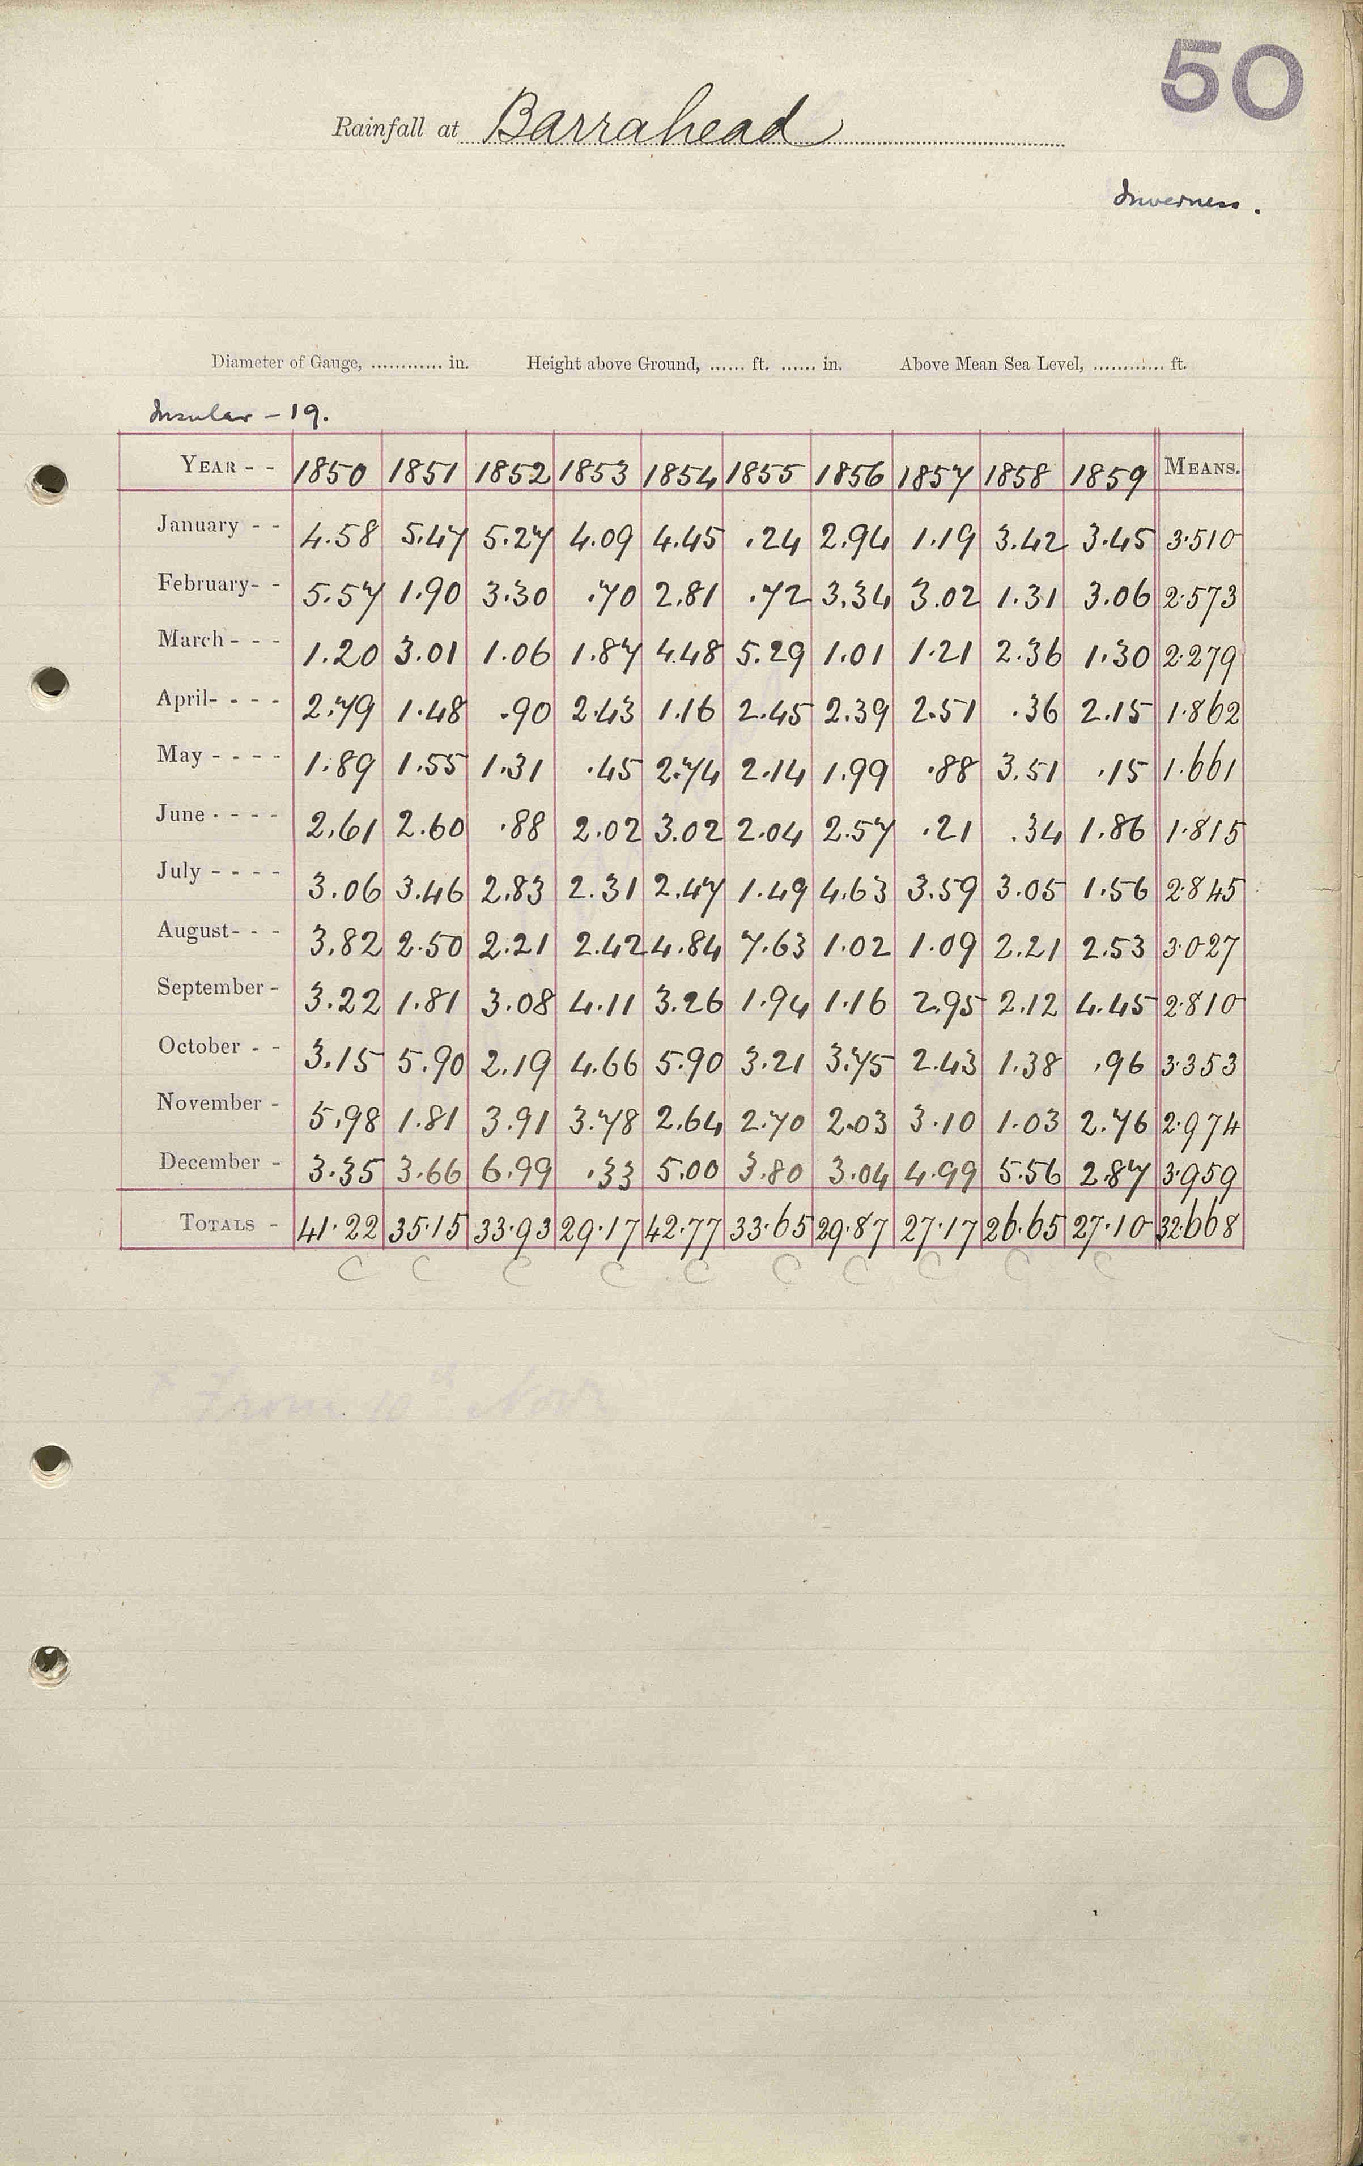 50
Rainfall at Barrahead
Inverness.
Diameter of Gauge, ............ in. Height above Ground, ...... ft. ...... in. Above Mean Sea Level, ............ ft.
Insular - 19.
YEAR - - 1850 1851 1852 1853 1854 1855 1856 1857 1858 1859 MEANS.
January - - 4.58 5.47 5.27 4.09 4.45 .24 2.94 1.19 3.42 3.45 3.510
February- - 5.57 1.90 3.30 .70 2.81 .72 3.34 3.02 1.31 3.06 2.573
March - - - 1.20 3.01 1.06 1.87 4.48 5.29 1.01 1.21 2.36 1.30 2.279
April- - - - 2.79 1.48 .90 2.43 1.16 2.45 2.39 2.51 .36 2.15 1.862
May - - - - 1.89 1.55 1.31 .45 2.74 2.14 1.99 .88 3.51 .15 1.661
June - - - - 2.61 2.60 .88 2.02 3.02 2.04 2.57 .21 .34 1.86 1.815
July - - - - 3.06 3.46 2.83 2.31 2.47 1.49 4.63 3.59 3.05 1.56 2.845
August- - - 3.82 2.50 2.21 2.42 4.84 7.63 1.02 1.09 2.21 2.53 3.027
September - 3.22 1.81 3.08 4.11 3.26 1.94 1.16 2.95 2.12 4.45 2.810
October - - 3.15 5.90 2.19 4.66 5.90 3.21 3.75 2.43 1.38 .96 3.353
November - 5.98 1.81 3.91 3.78 2.64 2.70 2.03 3.10 1.03 2.76 2.974
December - 3.35 3.66 6.99 .33 5.00 3.80 3.04 4.99 5.56 2.87 3.959
TOTALS - 41.22 35.15 33.93 29.17 42.77 33.65 29.87 27.17 26.65 27.10 32.668
C C C C C C C C C C
x From 10th Novr